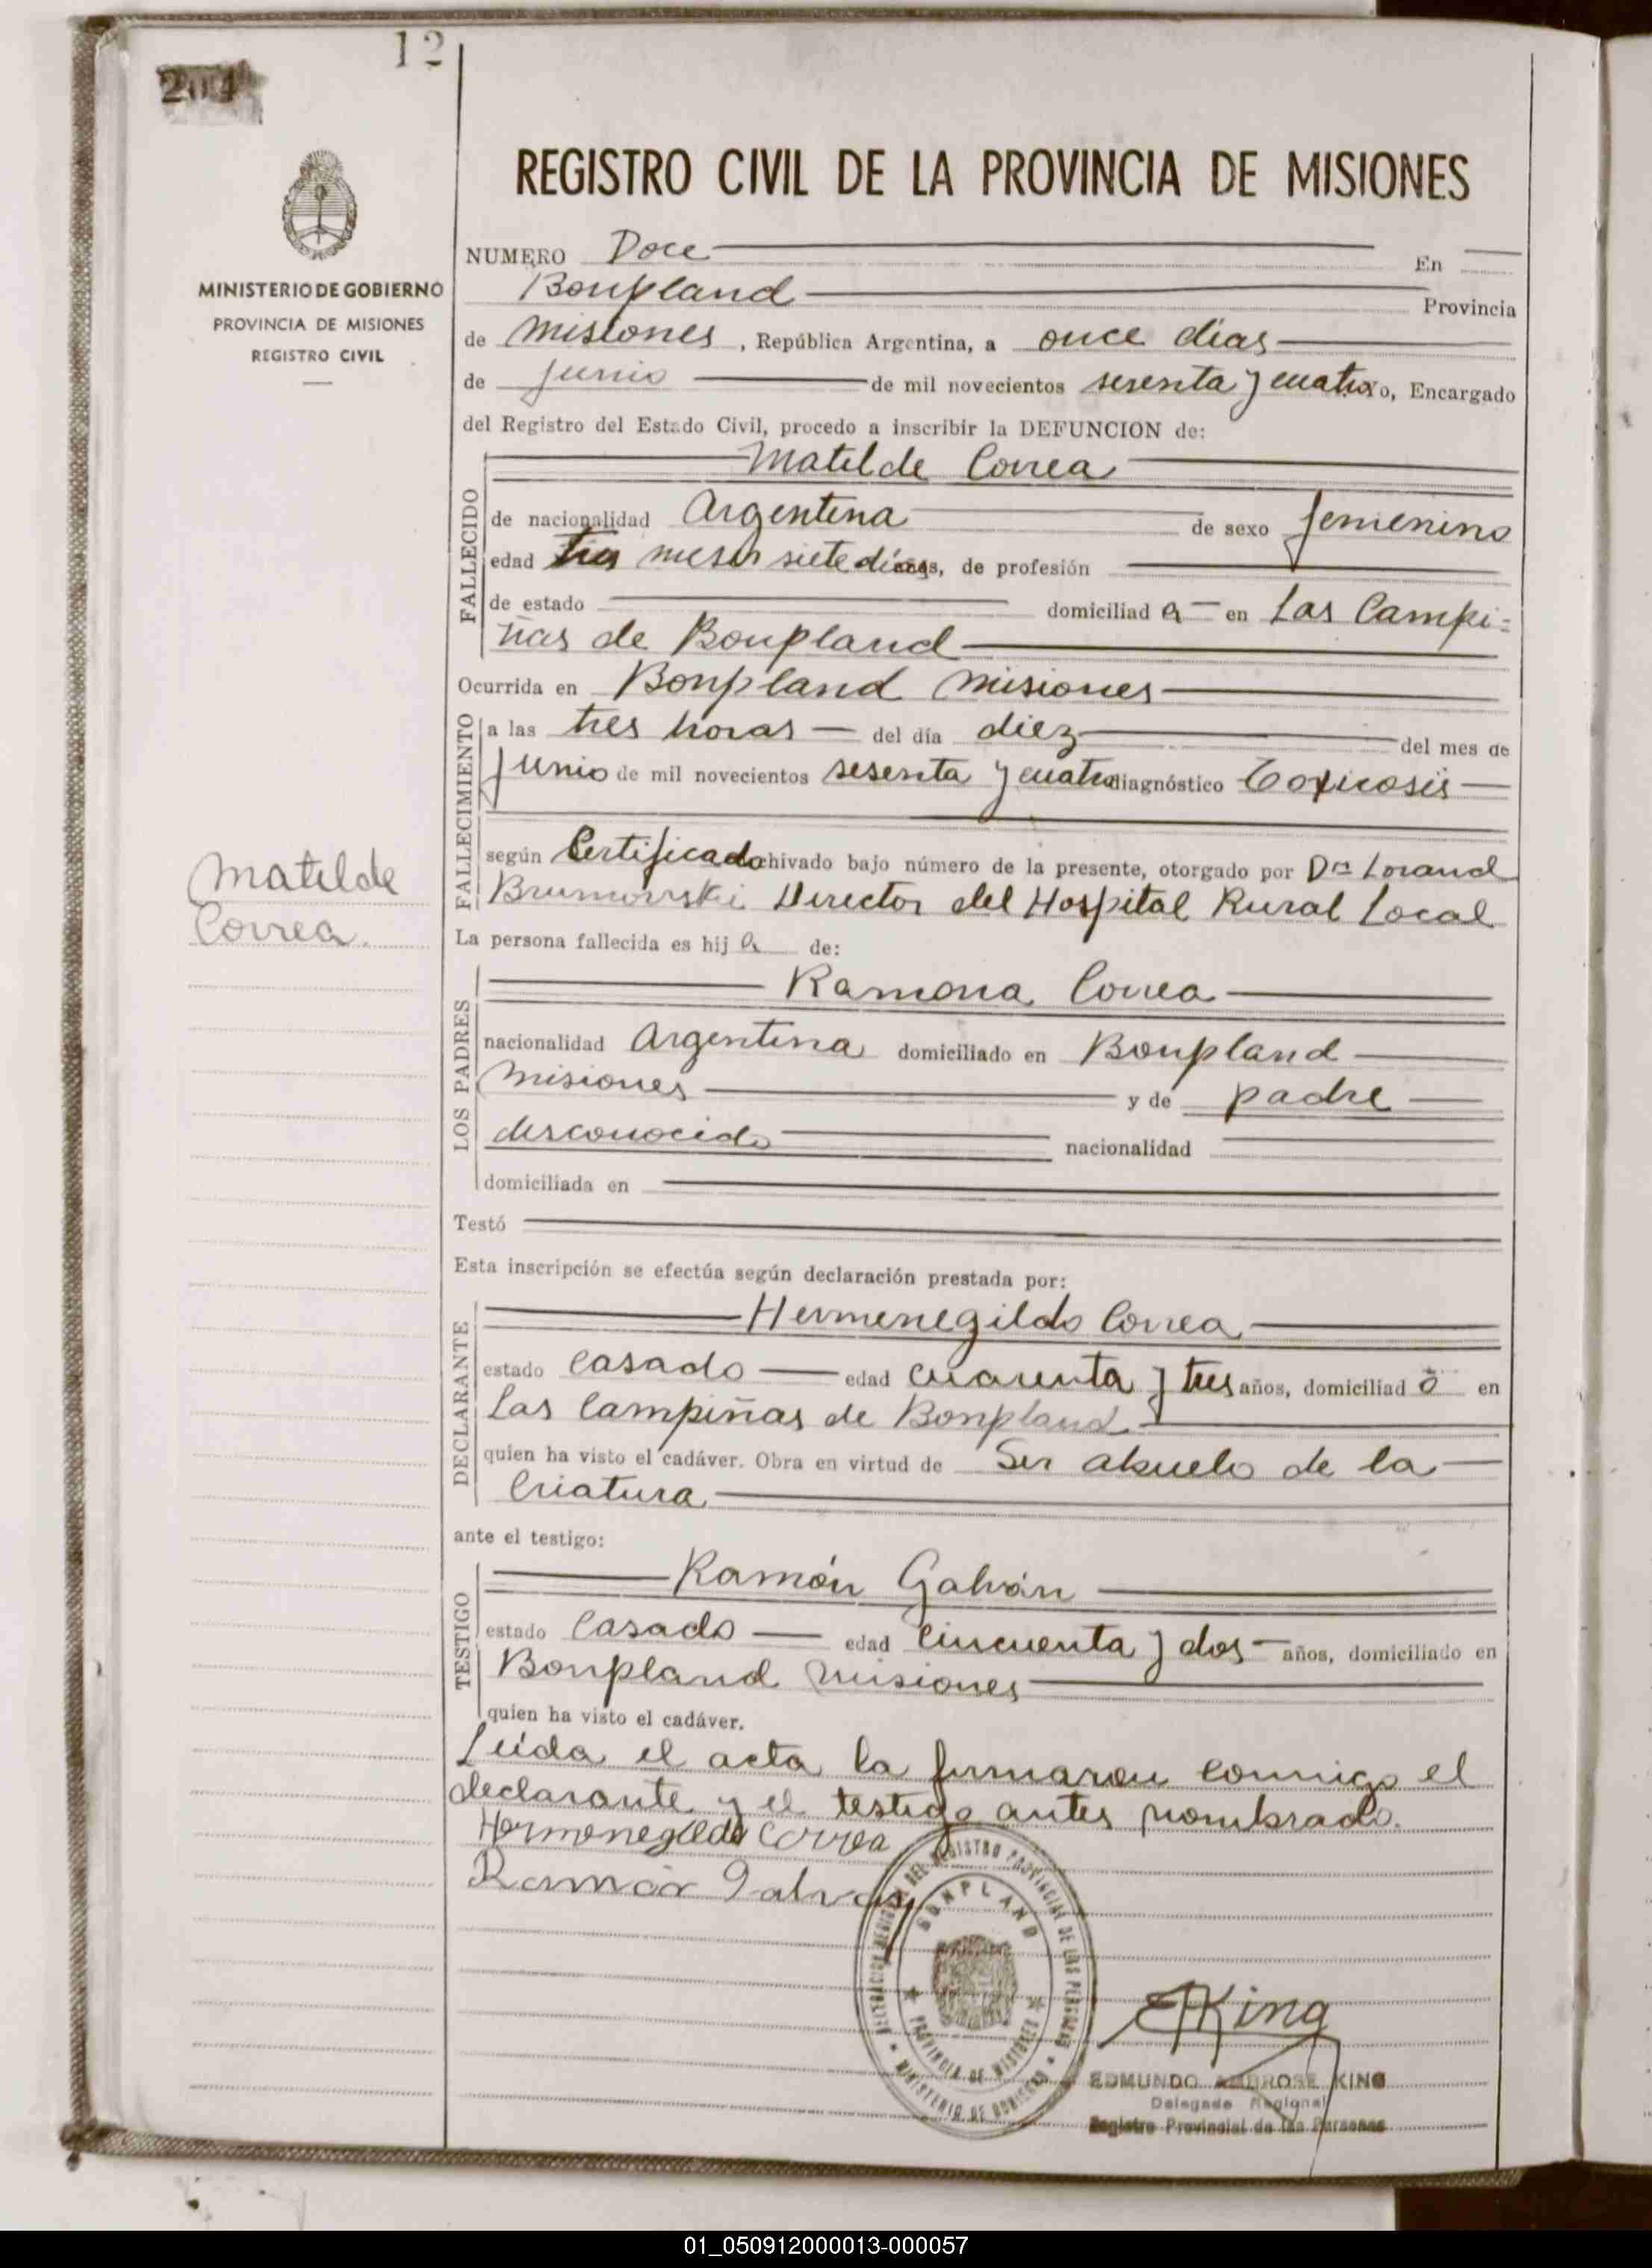 12
204
MINISTERIO DE GOBIERNO
PROVINCIA DE MISIONES
REGISTRO CIVIL
REGISTRO CIVIL DE LA PROVINCIA DE MISIONES
NUMERO Doce En
Bonpland Provincia
de Misiones, República Argentina, a once días
de junio de mil novecientos sesenta y cuatro, Encargado
del Registro del Estado Civil, procedo a inscribir la DEFUNCION de:
Matilde Correa
FALLECIDO
de nacionalidad Argentina de sexo femenino
edad tres meses siete días, de profesión
de estado domiciliad a en Las Campi=
ñas de Bonpland
Ocurrida en Bonpland Misiones
FALLECIMIENTO
a las tres horas del día diez del mes de
junio de mil novecientos sesenta y cuatro diagnóstico Toxicosis
según Certificado archivado bajo número de la presente, otorgado por Dr Lorand
Brumovski Director del Hospital Rural Local
Matilde
Correa.
La persona fallecida es hij a de:
LOS PADRES
Ramona Correa
nacionalidad Argentina domiciliado en Bonpland
Misiones y de padre
desconocido nacionalidad
domiciliada en
Testó
Esta inscripción se efectúa según declaración prestada por:
DECLARANTE
Hermenegildo Correa
estado Casado edad cuarenta y tres años, domiciliad o en
Las Campiñas de Bonpland
quien ha visto el cadáver. Obra en virtud de Ser abuelo de la
Criatura
ante el testigo:
TESTIGO
Ramón Galván
estado Casado edad Cincuenta y dos años, domiciliado en
Bonpland Misiones
quien ha visto el cadáver.
Leída el acta la firmaron conmigo el
declarante y el testigo antes nombrado.
Hermenegildo Correa
Ramón Galvan
DELEGACION REGIONAL DEL REGISTRO PROVINCIAL DE LAS PERSONAS
BONPLAND
PROVINCIA DE MISIONES
MINISTERIO DE GOBIERNO
EKing
EDMUNDO AMBROSE KING
Delegado Regional
Registro Provincial de las Personas
01_050912000013-000057